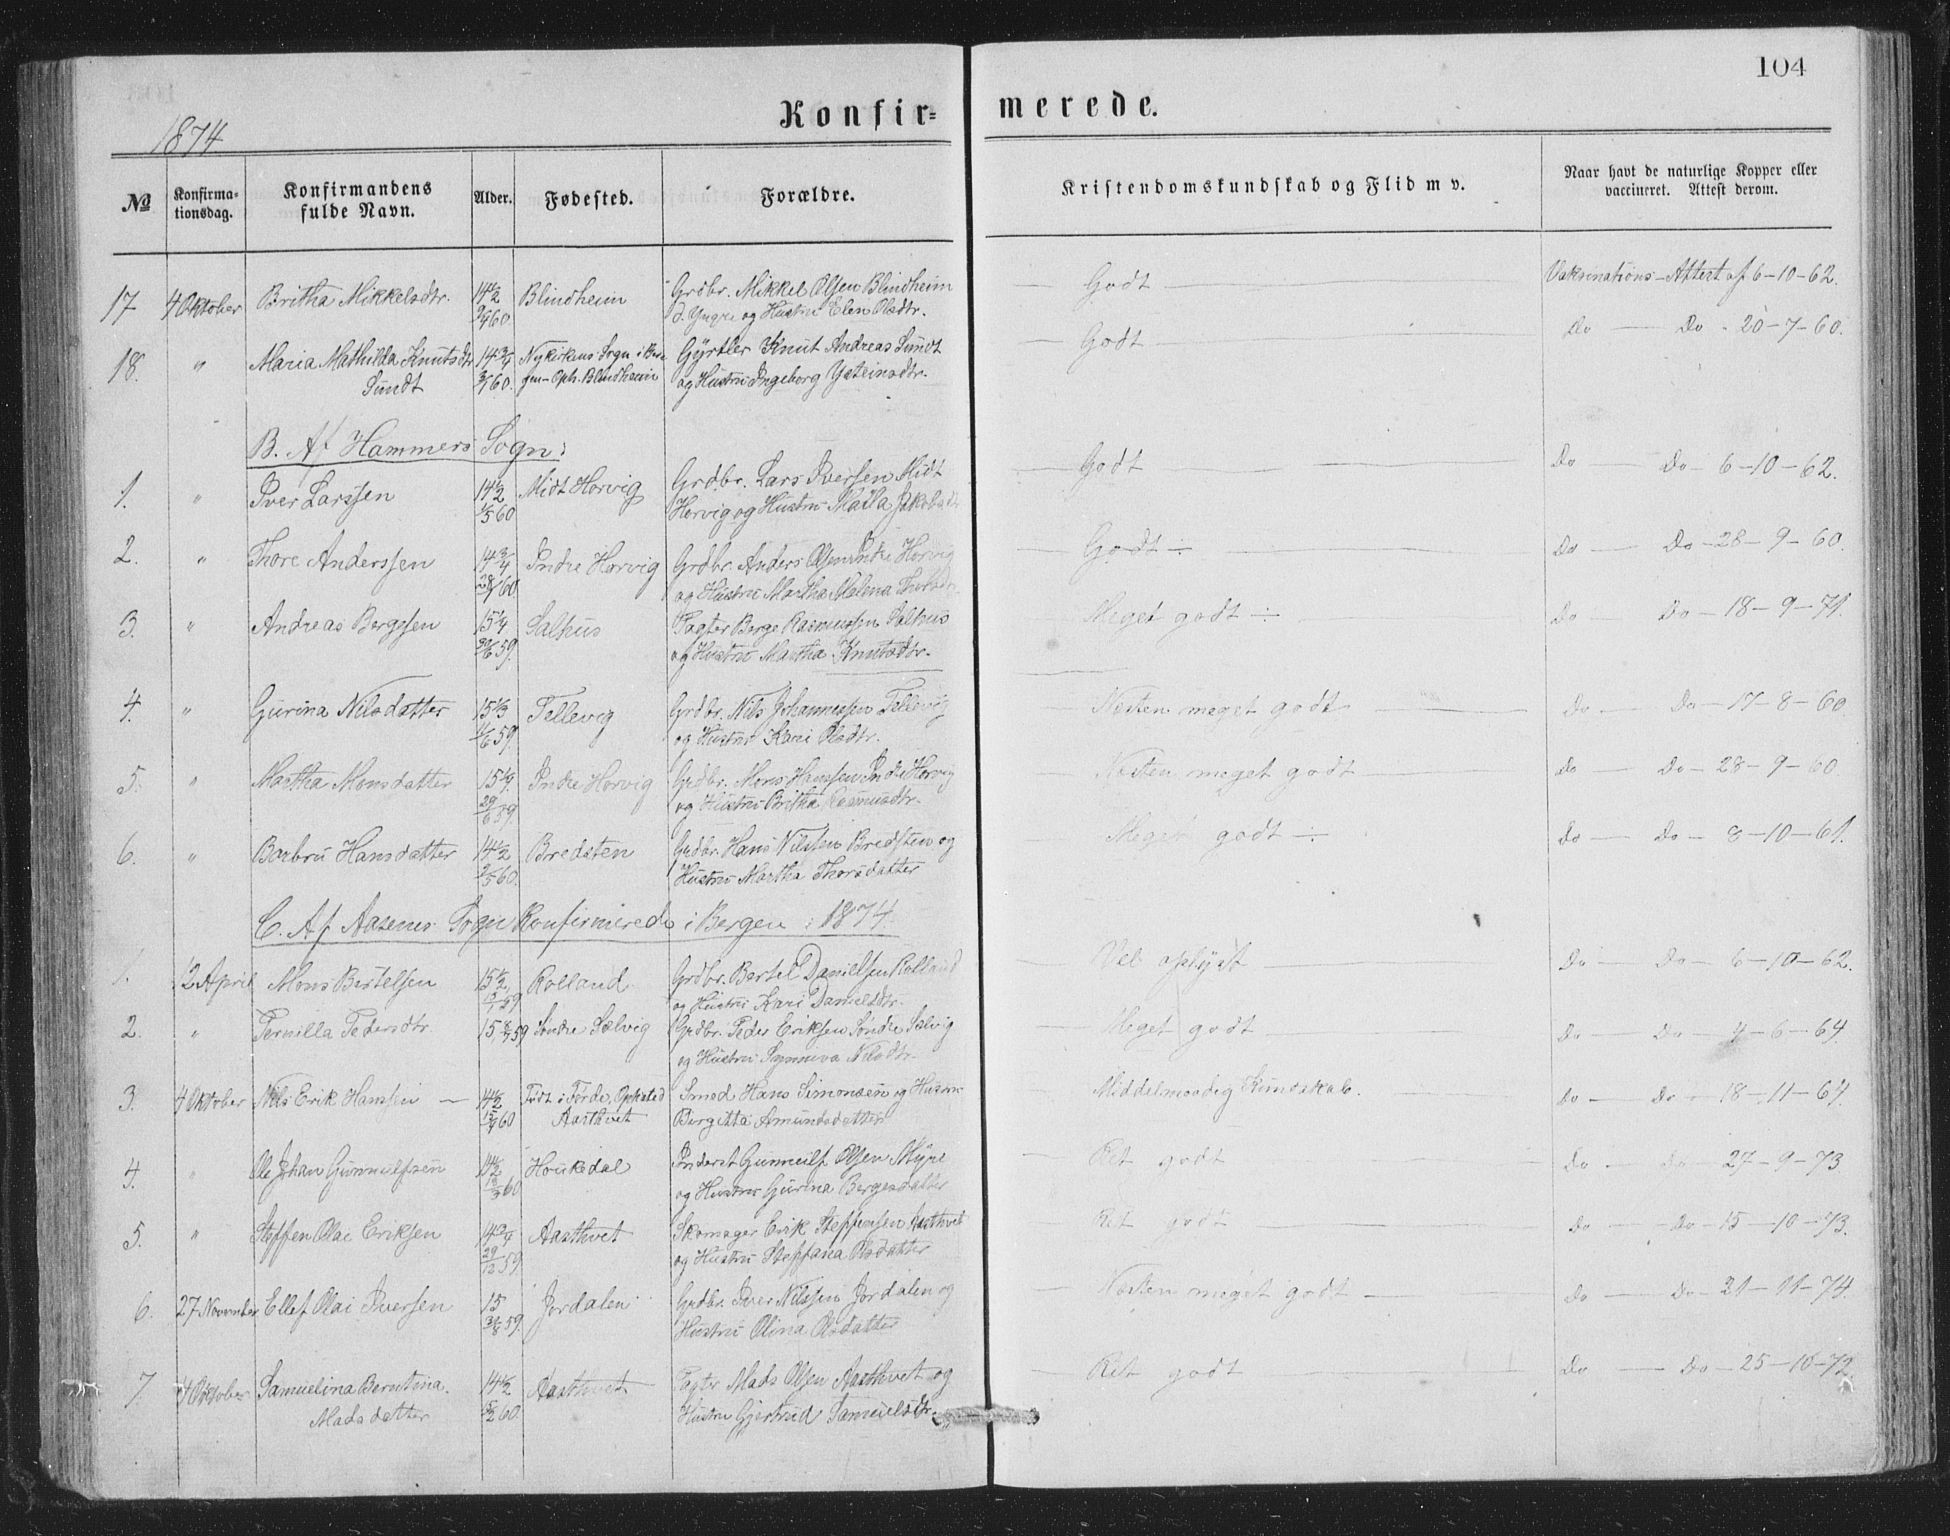 104
Konfir= merede.
1874
№ Konfirma-tionsdag. Konfirmandens fulde Navn. Alder. Fødested. Forældre. Kristendomskundskab og Flid m v. Naar havt de naturlige Kopper eller vaccineret. Attest derom.
17 4 Oktober Britha Mikkelsdtr. 14 1/2 Blindheim Grdbr. Mikkel Olsen Blindheim Godt Vaksinations-Attest af 6-10-62.
60. d. Yngre og Hustru Elen Olsdtr.
18. " Maria Mathilda Knutsdtr 14 3/4 Nykirkens Sogn i Ber Gyrtler Knut Andreas Sundt Godt Do Do - 20-7-60.
Sundt 60. gen-Oph. Blindheim og Hustru Ingeborg Ysteinsdtr.
B. Af Hammers Sogn:
1. " Iver Larssen 14 1/2 Midt Horvig Grdbr. Lars Iversen Midt Godt Do Do 6-10-62.
1/5 60 Horvig og Hustru Marta Jakobsdtr
2. " Thore Anderssen 14 3/4 Indre Horvig Grdbr. Anders Olsen Indre Horvig Godt ÷ Do Do 28-9-60.
60 og Hustru Martha Malena
3. " Andreas Bergssen 15 1/4 Salhus Pagter Berge Rasmussen Salhus Meget godt ÷ Do Do 18-9-71.
30/6 59. og Hustru Martha Knutsdtr.
4. " Gurina Nilsdatter 15 1/3 Tellevig Grdbr. Nils Johannessen Tellevig Nesten meget godt Do Do 17-8-60.
1/6 59. og Hustru Kari Olsdtr.
5. " Martha Monsdatter 15 1/4 Indre Horvig Grdbr. Mons Hanssen Indre Horvig Nesten meget godt Do Do 28-9-60.
29/6 59. og Hustru Britha Rasmusdtr.
6. " Barbru Hansdatter 14 1/2 Bredsten Grdbr. Hans Nilssen Bredsten og Meget godt ÷ Do Do 8-10-61.
2/5 60. Hustru Martha Thorsdatter
C. Af Aasenes Sogn Konfirmerede i Bergen : 1874.
1. 12 April Mons Bertelsen 15 1/2 Rolland Grdbr. Bertel Danielsen Rolland Vel oplyst Do Do 6-10-62.
59 og Hustru Kari Danielsdtr.
2. " Pernilla Pedersdtr. 15 59 Søndre Sælvig Grdbr. Peder Eriksen Søndre Sælvig Meget godt Do Do 4-6-64.
og Hustru Synneva Nilsdtr.
3. 4 Oktober Nils Erik Hanssen 14 1/2 Født i Førde, Opholsted Smed Hans Simonsen og Hustru Middelmaadig Kundskab. Do Do 18-11-64.
60 Aasthvet Birgitta Amundsdatter
4. " Ole Johan Gunnulfsen 14 1/2 Houkedal Inderst Gunnulf Olsen Myre Ret godt Do Do 27-9-73
60 og Hustru Gurina Bergesdatter
5. " Steffen Olai Eriksen 14 3/4 Aasthvet Skomager Erik Steffensen Aasthvet Ret godt Do Do 15-10-73.
29/12 59. og Hustru Steffana Olsdatter
6. 27 November Ellef Olai Iversen 15 Jordalen Grdbr. Iver Nilssen Jordalen og Nesten meget godt Do Do 21-11-74.
59. Hustru Olina Olsdatter
7 4 Oktober Samuelina Berntina 14 1/2 Aasthvet Pagter Mads Olsen Aasthvet og Ret godt Do Do 25-10-72.
Madsdatter 60. Hustru Gjertrud Samuelsdtr.